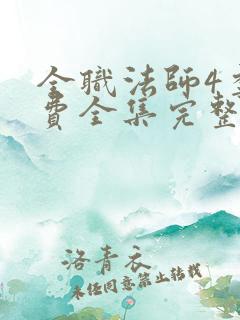 全職法師4
費全集完整
洛青衣
未经同意禁止转载